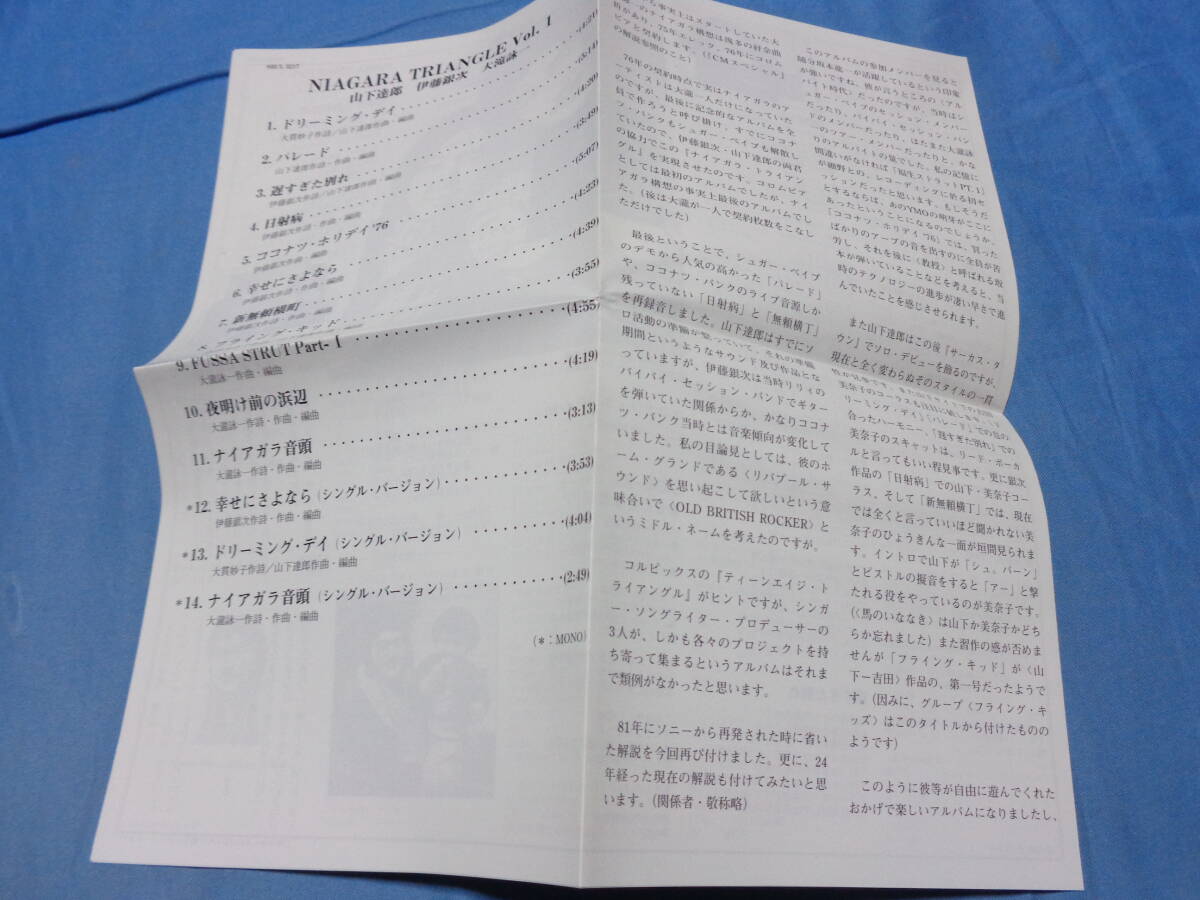 NIAGARA TRIANGLE Vol. 1
山下達郎 伊藤銀次 大滝詠一
1. ドリーミング・デイ
大貫妙子作詩／山下達郎作曲・編曲
(5:14)
2. パレード
山下達郎作詩・作曲・編曲
(4:20)
3. 遅すぎた別れ
伊藤銀次作詩／山下達郎作曲・編曲
(3:49)
4. 日射病
伊藤銀次作詩・作曲・編曲
(5:07)
5. ココナツ・ホリデイ'76
伊藤銀次作曲・編曲
(4:23)
6. 幸せにさよなら
伊藤銀次作詩・作曲・編曲
(4:39)
7. 新無頼横町
伊藤銀次作詩・作曲・編曲
(3:55)
8. フライング・キッド
9. FUSSA STRUT Part-1 (4:55)
大瀧詠一作曲・編曲
10. 夜明け前の浜辺 (4:19)
大瀧詠一作詩・作曲・編曲
11. ナイアガラ音頭 (3:13)
大瀧詠一作詩・作曲・編曲
*12. 幸せにさよなら (シングル・バージョン) (3:53)
伊藤銀次作詩・作曲・編曲
*13. ドリーミング・デイ (シングル・バージョン) (4:04)
大貫妙子作詩／山下達郎作曲・編曲
*14. ナイアガラ音頭 (シングル・バージョン) (2:49)
大瀧詠一作詩・作曲・編曲
(*：MONO)
ら事実上はスタートしていた大
一のナイアガラ構想は幾多の紆余曲
折があり、75年エレック、76年にコロム
ビアと契約します。(『CMスペシャル』
の解説参照のこと)
76年の契約時点で実はナイアガラのア
ーティストは大瀧一人だけになっていた
のですが、最後に記念的なアルバムを全
員で作ろうと呼び掛け、すでにココナ
ツ・バンクもシュガー・ベイブも解散し
ていたので、伊藤銀次・山下達郎の両君
の協力でこの『ナイアガラ・トライアン
グル』を実現させたのです。コロムビア
としては最初のアルバムでしたが、ナイ
アガラ構想の事実上最後のアルバムでし
た。(後は大瀧が一人で契約枚数をこなし
ただけでした)
最後ということで、シュガー・ベイブ
のデモから人気の高かった「パレード」
や、ココナツ・バンクのライブ音源しか
残っていない「日射病」と「無頼横丁」
を再録音しました。山下達郎はすでにソ
ロ活動の準備が整っていて、それの準備
期間というようなサウンド及び作品とな
っていますが、伊藤銀次は当時リリィの
バイバイ・セッション・バンドでギター
を弾いていた関係からか、かなりココナ
ツ・バンク当時とは音楽傾向が変化して
いました。私の目論見としては、彼のホ
ーム・グランドである〈リバプール・サ
ウンド〉を思い起こして欲しいという意
味合いで〈OLD BRITISH ROCKER〉と
いうミドル・ネームを考えたのですが。
コルピックスの『ティーンエイジ・ト
ライアングル』がヒントですが、シンガ
ー・ソングライター・プロデューサーの
3人が、しかも各々のプロジェクトを持
ち寄って集まるというアルバムはそれま
で類例がなかったと思います。
81年にソニーから再発された時に省い
た解説を今回再び付けました。更に、24
年経った現在の解説も付けてみたいと思
います。(関係者・敬称略)
このアルバムの参加メンバーを見ると
随分坂本龍一が活躍しているという印象
が強いですね。彼が言うところの〈アル
バイト時代〉だったのですが、当時はシ
ュガー・ベイブのセッション・メンバー
だったり、バイバイ・セッション・バン
ドのメンバーだったり、はたまた大瀧詠
一のツアー・メンバーだったりと、かな
りのアルバイトの量でした。私の記憶に
間違いがなければ「福生ストラットPT. I」
が細野との、レコーディングに於る初セ
ッションだったと思います。もしそうだ
とするならば、あのYMOの萌芽がここに
あったということになるのでしょうか。
「ココナツ・ホリデイ '76」では、買った
ばかりのアープの音を出すのに全員が苦
労し、それを後に〈教授〉と呼ばれる坂
本が弾いていることなどを考えると、当
時のテクノロジーの進歩が凄い早さで進
んでいたことを感じさせられます。
また山下達郎はこの後『サーカス・タ
ウン』でソロ・デビューを飾るのですが、
現在と全く変わらぬそのスタイルの一貫
リーミング・デイ」「パレード」での息の
合ったハーモニー、「遅すぎた別れ」での
美奈子のスキャットは、リード・ボーカ
ルと言ってもいい程見事です。更に銀次
作品の「日射病」での山下・美奈子コー
ラス、そして「新無頼横丁」では、現在
では全くと言っていいほど聞かれない美
奈子のひょうきんな一面が垣間見られま
す。イントロで山下が「シュ。バーン」
とピストルの擬音をすると「アー」と撃
たれる役をやっているのが美奈子です。
(〈馬のいななき〉は山下か美奈子かどち
らか忘れました) また習作の感が否めま
せんが「フライング・キッド」が〈山
下ー吉田〉作品の、第一号だったようで
す。(因みに、グループ〈フライング・キ
ッズ〉はこのタイトルから付けたものの
ようです)
このように彼等が自由に遊んでくれた
おかげで楽しいアルバムになりましたし、